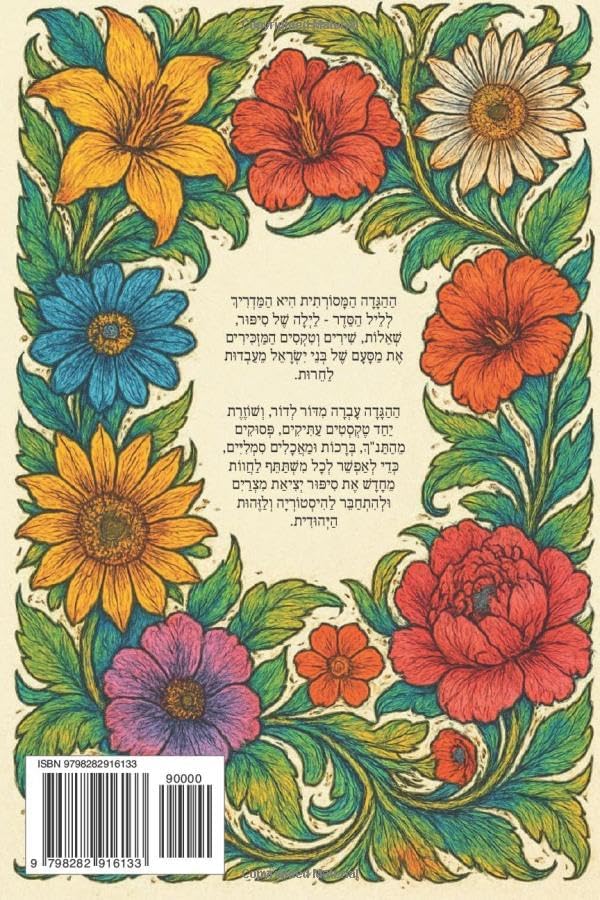 Copyrighted Material
הַהַגָּדָה הַמָּסוֹרְתִּית הִיא הַמַּדְרִיךְ
לְלֵיל הַסֵּדֶר - לַיְלָה שֶׁל סִיפּוּר,
שְׁאֵלוֹת, שִׁירִים וְטְקָסִים הַמַּזְכִּירִים
אֶת מַסָּעָם שֶׁל בְּנֵי יִשְׂרָאֵל מֵעַבְדוּת
לְחֵרוּת.
הַהַגָּדָה עָבְרָה מִדּוֹר לְדוֹר, וְשׁוֹזֶרֶת
יַחַד טֶקְסְטִים עַתִּיקִים, פְּסוּקִים
מֵהַתַּנַ"ךְ, בְּרָכוֹת וּמַאֲכָלִים סִמְלִיִּים,
כְּדֵי לְאַפְשֵׁר לְכָל מִשְׁתַּתֵּף לַחֲווֹת
מֵחָדָשׁ אֶת סִיפּוּר יְצִיאַת מִצְרַיִם
וּלְהִתְחַבֵּר לַהִיסְטוֹרְיָה וְלַזֶּהוּת
הַיְּהוּדִית.
ISBN 9798282916133
90000
9 798282 916133
Copyrighted Material